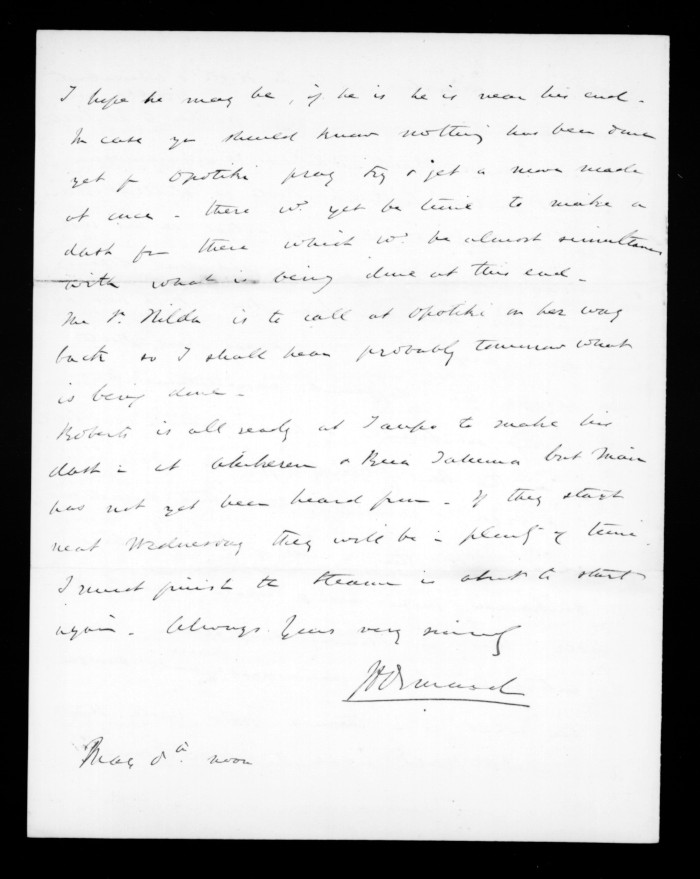 I hope he may be, if he is he is near his end -
In case you should know nothing has been done
yet fr Opotiki pray try & get a move made
at once - there wd. yet be time to make a
dash fr there which wd. be almost simultaneous
with what is being done at this end -
The St. Hilda is to call at Opotiki on her way
back so I shall hear probably tomorrow what
is being done -
Roberts is all ready at Taupo to make his
dash in at & but Mair
has not yet been heard from - If they start
next Wednesday they will be in plenty of time.
I must finish the steamer is about to start
again - Always Yours very sincerely
JD Ormond
May 8th. noon